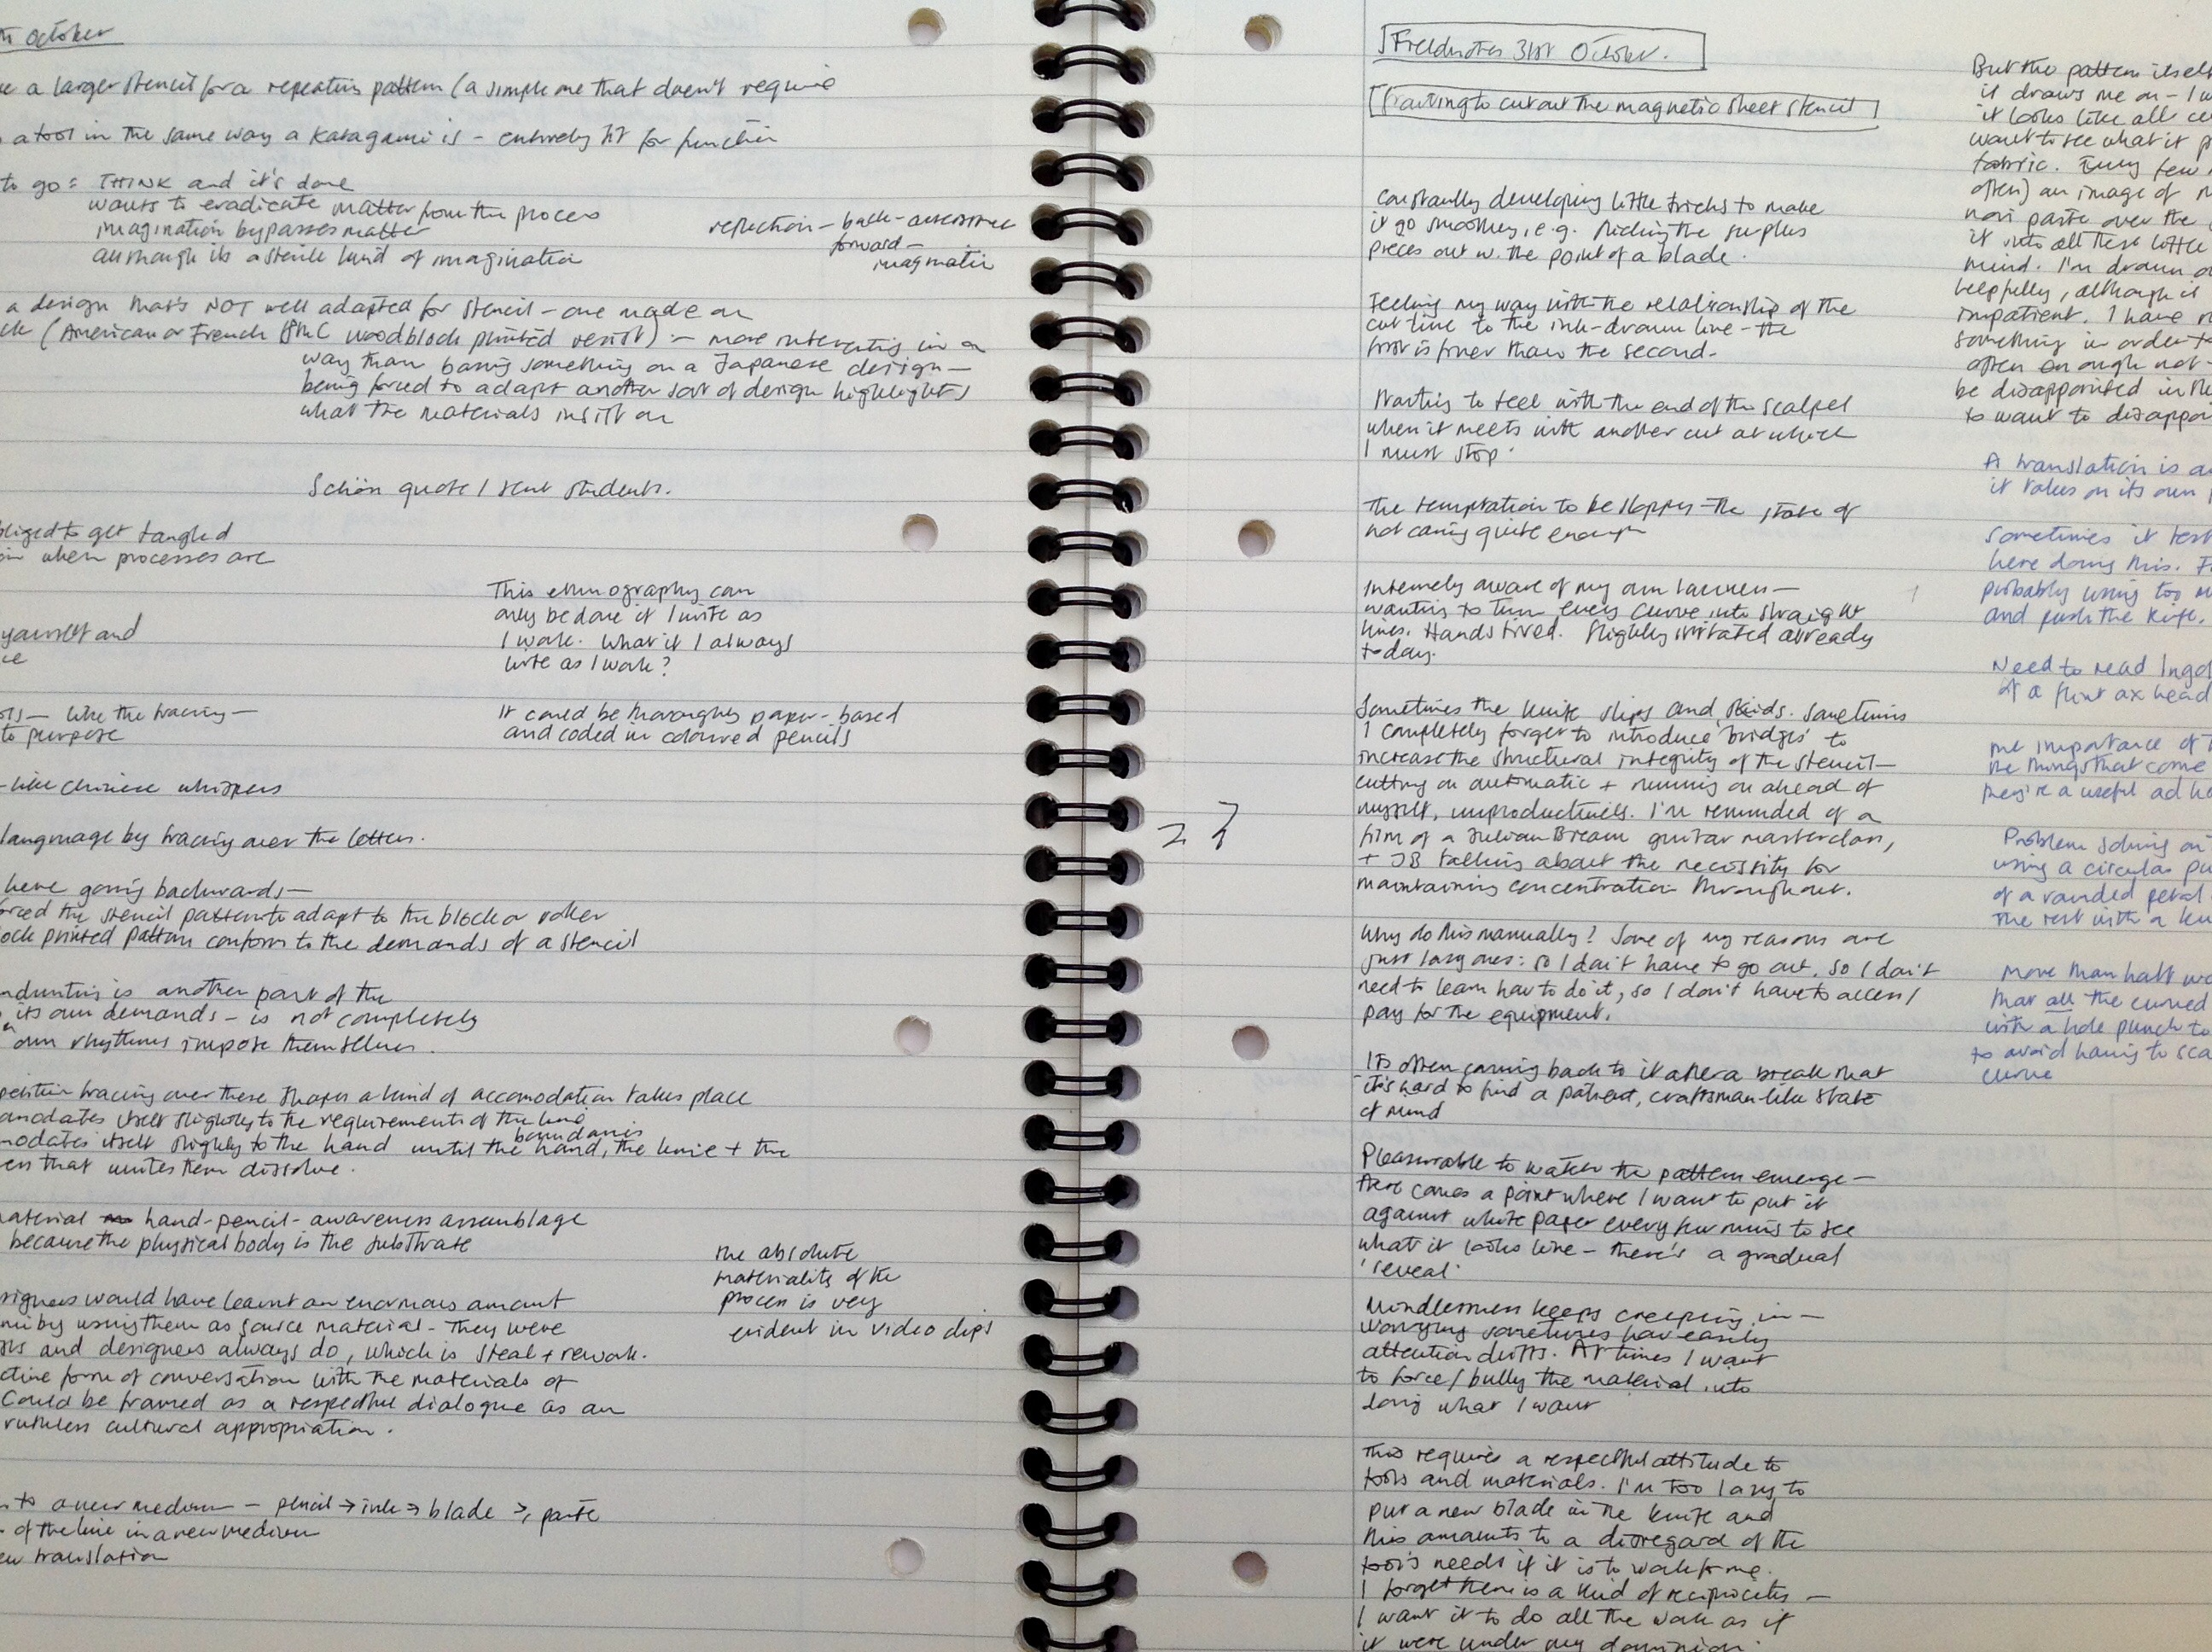 October
a larger stencil for a repeating pattern (a simple one that doesn't require
a tool in the same way a Katagami is - entirely fit for function
to go = THINK and it's done
wants to eradicate matter from the process
imagination bypasses matter
although its a sterile kind of imagination
reflection - back-
forward -
imagination
a design that's NOT well adapted for stencil - one made on
(American or French woodblock printed resist) - more interesting in a
way than basing something on a Japanese design -
being forced to adapt another sort of design highlights
what the materials insist on
Schön quote I sent students.
to get tangled
when processes are
This ethnography can
only be done if I write as
I work. What if I always
write as I work?
yourself and
- like the tracing -
to purpose
It could be thoroughly paper-based
and coded in coloured pencils
- like chinese whispers
language by tracing over the letters.
here going backwards -
the stencil pattern to adapt to the block or roller
printed pattern conform to the demands of a stencil
is another part of the
its own demands - is not completely
own rhythms impose themselves.
tracing over these shapes a kind of accomodation takes place
itself slightly to the requirements of the line
itself slightly to the hand until the boundaries hand, the knife + the
that unites them dissolve.
material hand-pencil-awareness assemblage
because the physical body is the substrate
the absolute
materiality of the
process is very
evident in video clips
would have learnt an enormous amount
by using them as source material - they were
and designers always do, which is steal + rework.
form of conversation with the materials of
Could be framed as a respectful dialogue as an
ruthless cultural appropriation.
to a new medium - pencil → ink → blade → paste
of the line in a new medium
translation
Fieldnotes 31st October.
Starting to cut out the magnetic sheet stencil
Constantly developing little tricks to make
it go smoothly, e.g. flicking the surplus
pieces out w. the point of a blade.
Feeling my way with the relationship of the
cut line to the ink-drawn line - the
first is finer than the second.
Starting to feel with the end of the scalpel
when it meets with another cut at which
I must stop.
The temptation to be sloppy - the state of
not caring quite enough
Intensely aware of my own laziness -
wanting to turn every curve into straight
lines. Hands tired. Slightly irritated already
today.
Sometimes the knife slips and skids. Sometimes
I completely forget to introduce 'bridges' to
increase the structural integrity of the stencil -
cutting on automatic + running on ahead of
myself, unproductively. I'm reminded of a
film of a Julian Bream guitar masterclass,
+ JB talking about the necessity for
maintaining concentration throughout.
Why do this manually? Some of my reasons are
just lazy ones: so I don't have to go out, so I don't
need to learn how to do it, so I don't have to access/
pay for the equipment.
It's often coming back to it after a break that
it's hard to find a patient, craftsman-like state
of mind
Pleasurable to watch the pattern emerge -
there comes a point where I want to put it
against white paper every few mins to see
what it looks like - there's a gradual
'reveal'
Mindlessness keeps creeping in -
worrying sometimes how easily
attention drifts. At times I want
to force/bully the material into
doing what I want
This requires a respectful attitude to
tools and materials. I'm too lazy to
put a new blade in the knife and
this amounts to a disregard of the
tool's needs if it is to work for me.
I forget there is a kind of reciprocity -
I want it to do all the work as if
it were under my dominion.
But the pattern itself
it draws me on - I
it looks like all
want to see what it
fabric. Every few
often) an image of
paste over the
it into all these little
mind. I'm drawn
helpfully, although it
impatient. I have
something in order to
often enough not
be disappointed in the
to want to
A translation is
it takes on its own
Sometimes it
here doing this.
probably using too
and push the knife.
Need to read
of a flint ax head
The importance of
the things that come
they're a useful ad
Problem solving
using a circular
of a rounded petal
the rest with a
More than half
that all the curved
with a hole punch to
to avoid having to
curve